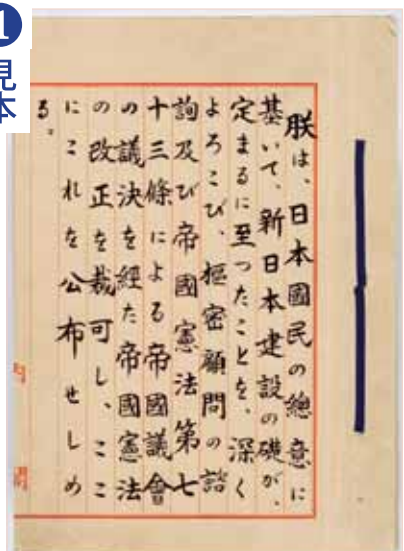 1
見本
朕は、日本國民の總意に
基いて、新日本建設の礎が、
定まるに至つたことを、深く
よろこび、樞密顧問の諮
詢及び帝國憲法第七
十三條による帝國議會
の議決を経た帝國憲法
の改正を裁可し、ここ
にこれを公布せしめ
る。